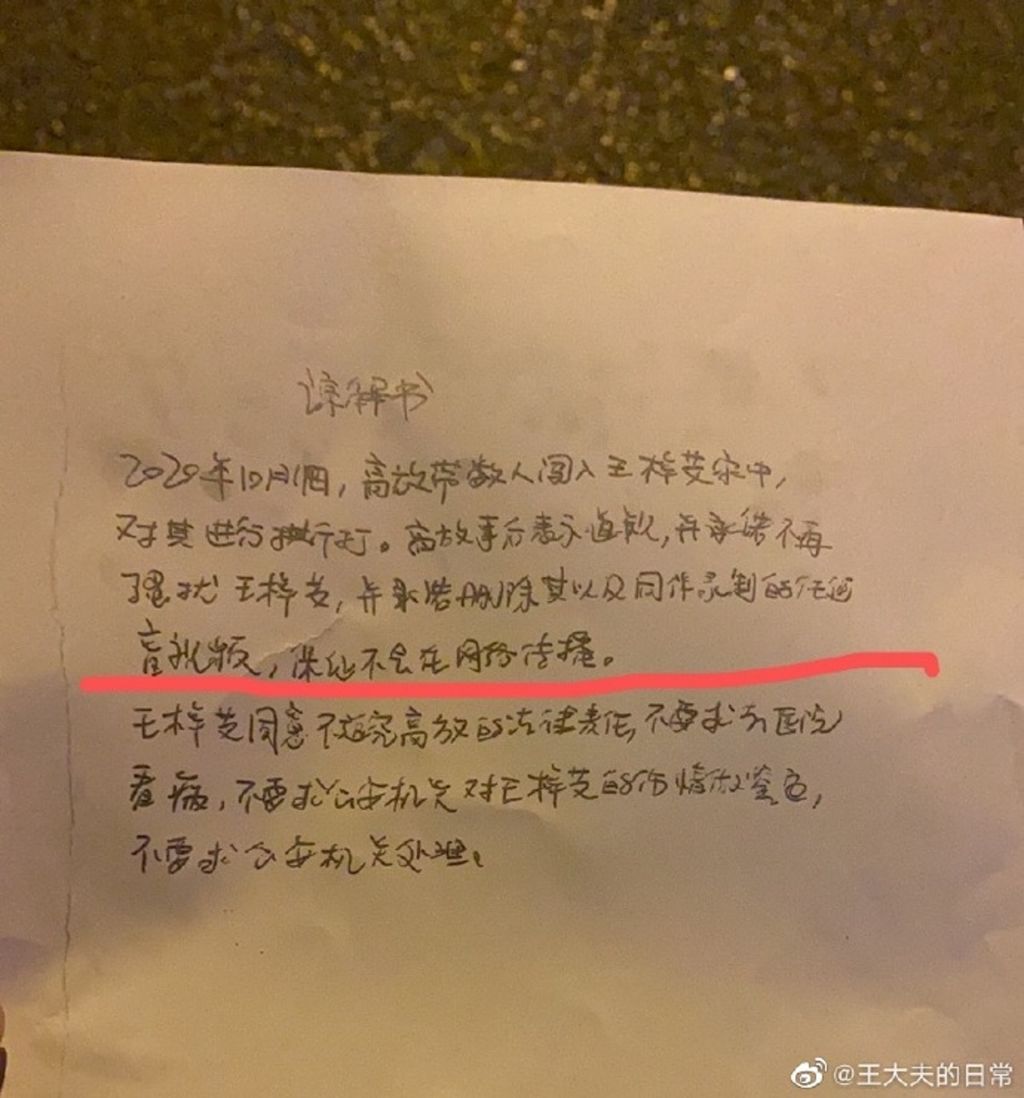 谅解书
2020年10月1日，高放带数人闯入王梓芠家中，
对其进行推行打。高放事后表示道歉，并承诺不再
骚扰王梓芠，并承诺删除其以及同伴录制的任何
音视频，保证不会在网络传播。
王梓芠同意不追究高放的法律责任，不要求去医院
看病，不要求公安机关对王梓芠的伤情做鉴定，
不要求公安机关处理。
@王大夫的日常